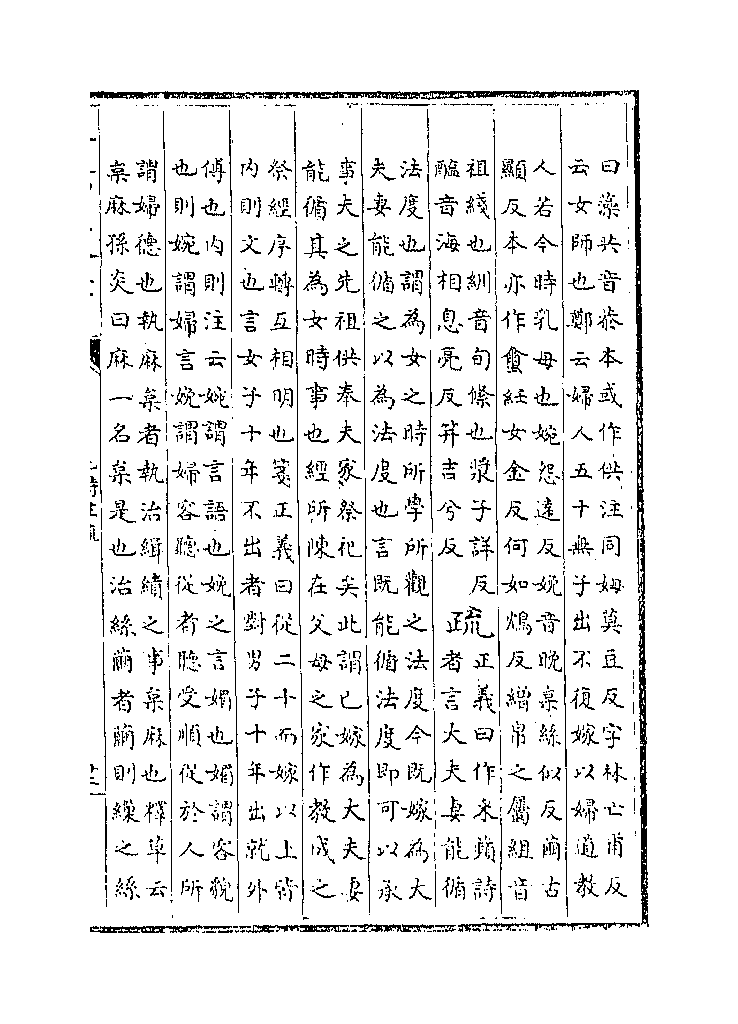 曰藻共音恭本或作供注同姆莫豆反字林亡甫反
云女師也鄭云婦人五十無子出不復嫁以婦道教
人若今時乳母也婉怨逺反娩音晚枲絲似反繭古
顯反本亦作紝女金反何如鴆反繒帛之屬組音
祖綫也紃音旬絛也漿子詳反
醢音海相息亮反笄吉兮反
疏
正義曰作采蘋詩
者言大夫妻能循
法度也謂為女之時所學所觀之法度今既嫁為大
夫妻能循之以為法度也言既能循法度即可以承
事夫之先祖供奉夫家祭祀矣此謂已嫁為大夫妻
能循其為女時事也經所陳在父母之家作教成之
祭經序轉互相明也箋正義曰從二十而嫁以上皆
内則文也言女子十年不出者對男子十年出就外
傅也内則注云婉謂言語也娩之言媚也媚謂容貌
也則婉謂婦言娩謂婦容聽從者聽受順從於人所
謂婦德也執麻枲者執治緝績之事枲麻也釋草云
枲麻孫炎曰麻一名枲是也治絲繭者繭則繅之絲